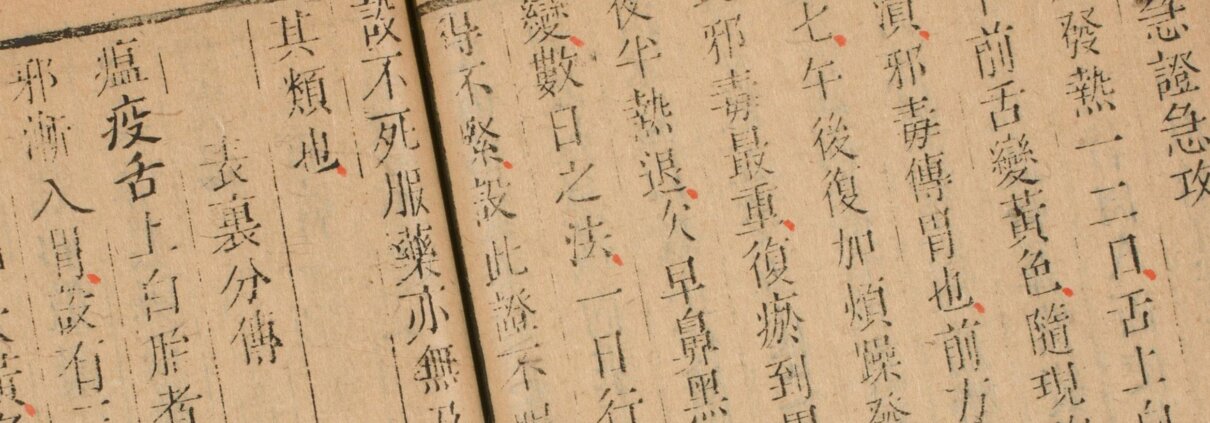 急證急攻
發熱一二日舌上白
前舌變黃色隨現
滇邪毒傳胃也前方
七午後復加煩躁發
邪毒最重復瘀到胃
夜半熱退次早鼻黑
變數日之法一日行
得不緊設此證不服
不死服藥亦無及
其類也
表裏分傳
瘟疫舌上白胎者
邪漸入胃故有三
黃